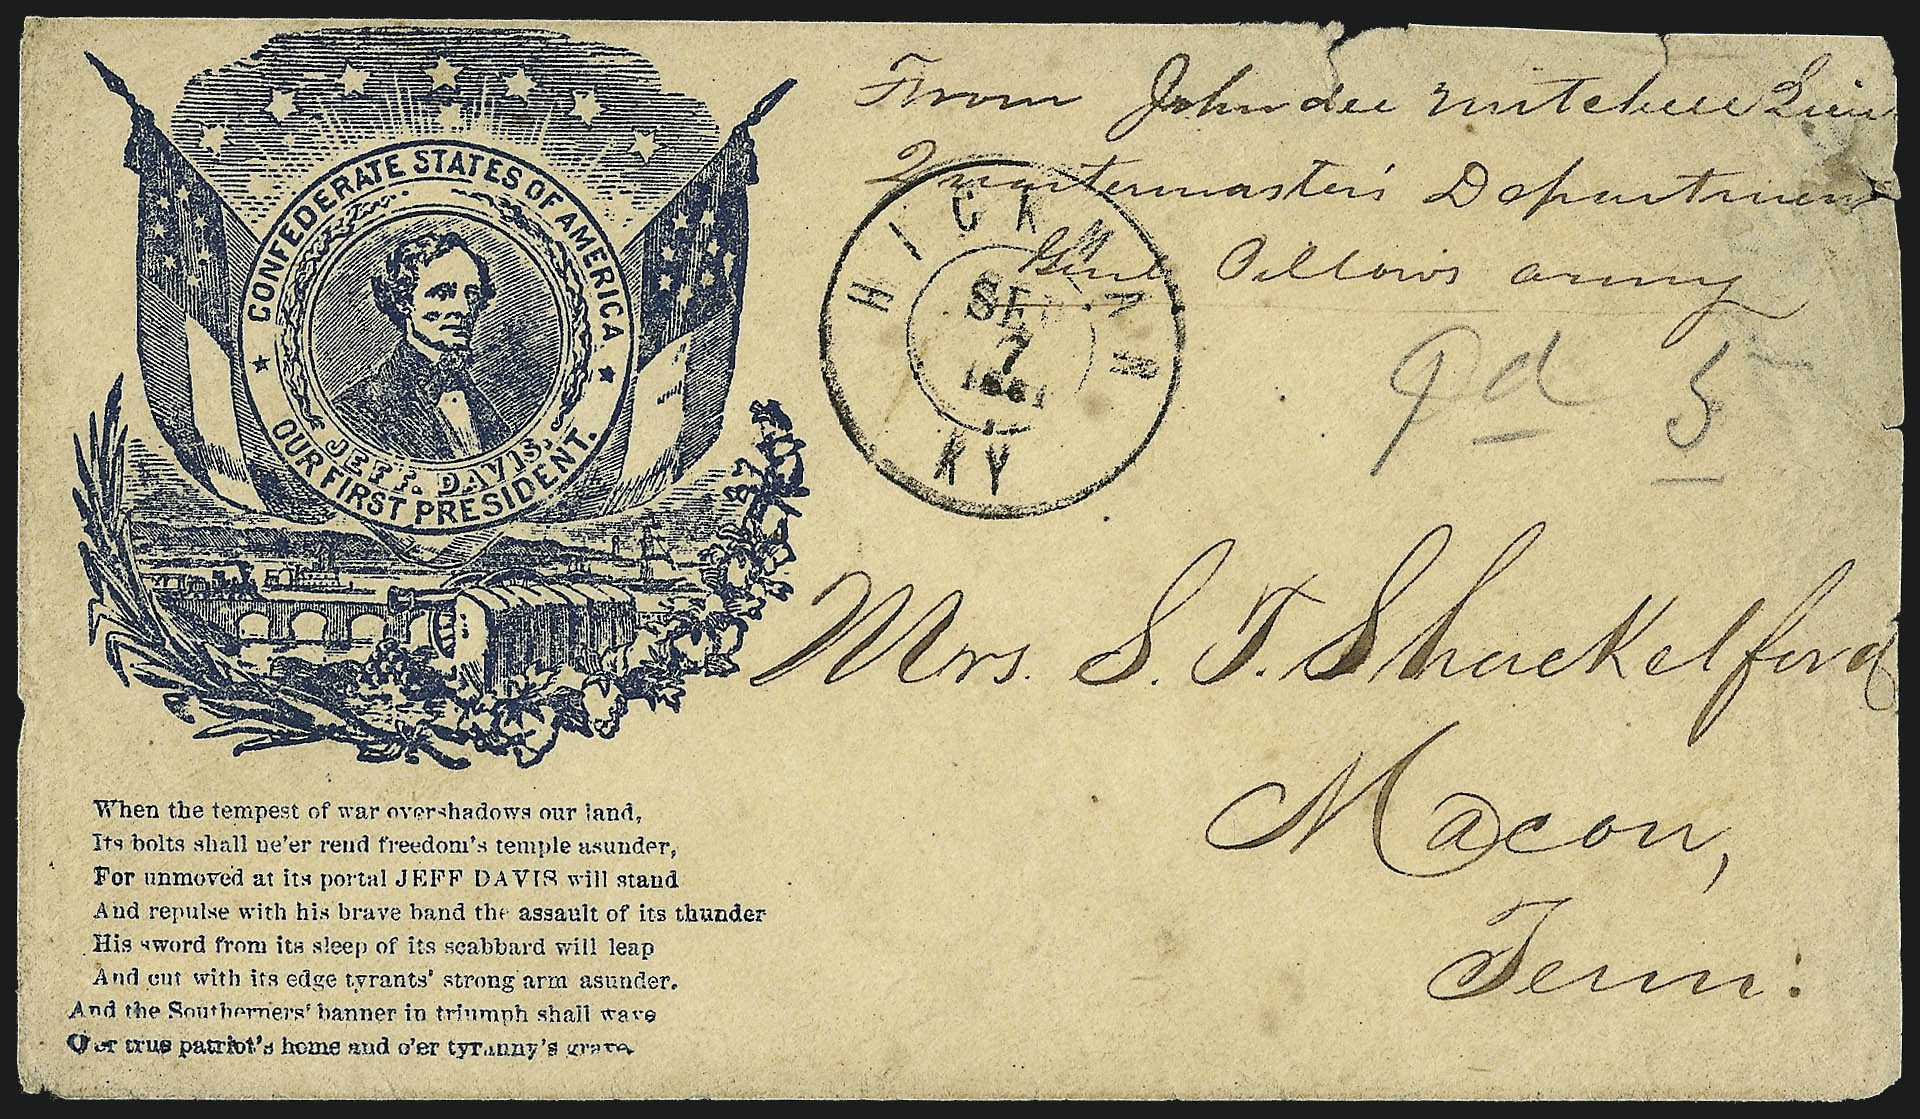 CONFEDERATE STATES OF AMERICA
JEFF. DAVIS.
OUR FIRST PRESIDENT.
From John dee Mitchell Lieu
Quartermaster's Department
Genl Pillows army
HICKMAN
SEP
7
1861
KY
Pd 5
Mrs. S. T. Shackelford
Macon,
Tenn:
When the tempest of war overshadows our land,
Its bolts shall ne'er rend freedom's temple asunder,
For unmoved at its portal JEFF DAVIS will stand
And repulse with his brave band the assault of its thunder
His sword from its sleep of its scabbard will leap
And cut with its edge tyrants' strong arm asunder.
And the Southerners' banner in triumph shall wave
O'er true patriot's home and o'er tyranny's grave.